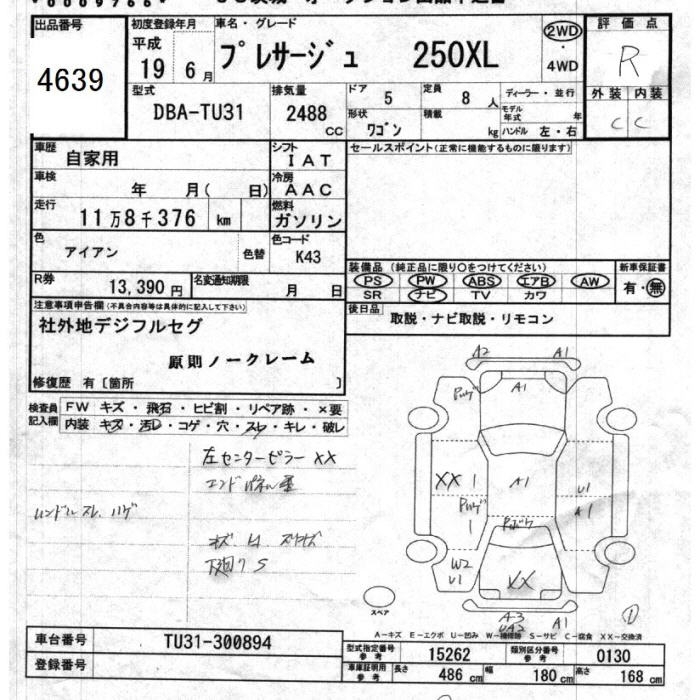 出品番号
4639
初度登録年月
平成
19 6月
車名・グレード
プレサージュ 250XL
2WD
・
4WD
評価点
R
外装 内装
C C
型式
DBA-TU31
排気量
2488
CC
ドア 5
定員 8人
形状 ワゴン
積載 kg
ディーラー・並行
モデル年式 年
ハンドル 左・右
車歴 自家用
シフト
IAT
セールスポイント(正常に機能するものに限ります)
車検 年 月( 日)
冷房
AAC
走行 11万8千376 km
燃料
ガソリン
色 アイアン 色替
色コード
K43
R券 13,390円
名変通知期限 月 日
装備品(純正品に限り○をつけてください)
PS PW ABS エアB AW
SR ナビ TV カワ
新車保証書
有・無
後日品 取説・ナビ取説・リモコン
注意事項申告欄(不具合内容等は具体的に記入して下さい)
社外地デジフルセグ
原則ノークレーム
修復歴 有〔箇所 〕
検査員記入欄
FW キズ・飛石・ヒビ割・リペア跡・×要
内装 キズ・汚レ・コゲ・穴・スレ・キレ・破レ
左センターピラー XX
ハンドルスレ ハゲ
A2 A1
A1
XX 1
A1
U1
A1
1
W2
U1
XX
A1
スペア
A-キズ E-エクボ U-凹み W-補修跡 S-サビ C-腐食 XX-交換済
車台番号 TU31-300894
登録番号
型式指定番号 参考 15262
類別区分番号 参考 0130
車庫証明用 参考 長さ 486cm 幅 180cm 高さ 168cm